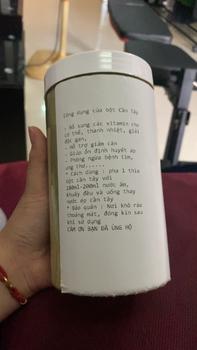 Công dụng của bột Cần tây
- Bổ sung các vitamin cho
cơ thể, thanh nhiệt, giải
độc gan,
- Hỗ trợ giảm cân
- Giúp ổn định huyết áp
- Phòng ngừa bệnh tim,
ung thư......
* Cách dùng : pha 1 thìa
bột cần tây với
180ml-200ml nước ấm,
khuấy đều và uống thay
nước ép cần tây
* Bảo quản : Nơi khô ráo
thoáng mát, đóng kín sau
khi sử dụng
CẢM ƠN BẠN ĐÃ ỦNG HỘ